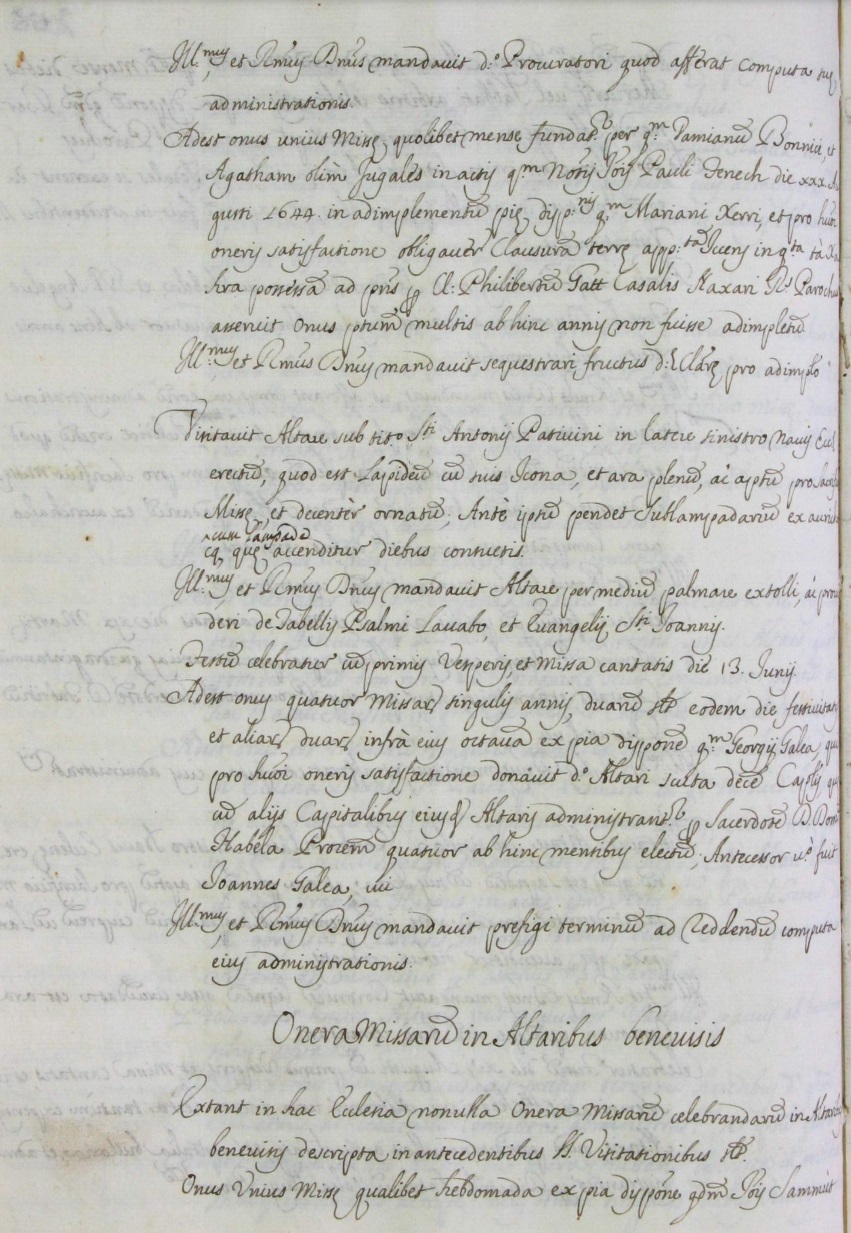 Ill.mus et Rm̃us Dn̄us mandavit d.o Procuratori quod afferat computa suæ
administrationis.
Adest onus unius Missę quolibet mense fundat. per q.m Damianũ Bonnici, et
Agatham olim Jugales in actis q.m Notrij Jois Pauli Fenech die xxx. Au
gusti 1644. in adimplementũ pię disp.nis q.m Mariani Xerri, et pro huõi
oneris satisfactione obligaver̃ Clausurã terrę app:tã
possessã ad pñs ꝑ Cl: Philibertũ Gatt Casalis Naxari Rs Parochus
asseruit Onus ptum̃ multis ab hinc annis non fuisse adimpletũ
Ill.mus et Rm̃us Dn̄us mandavit sequestrari, fructus d: Clãrę pro adimplõ
Visitavit Altare sub tit.o S.ti Antonij Patavini in latere sinistro Navis Eccl
erectũ, quod est Lapideũ cũ suis Icona, et ara plenũ, ac aptũ pro sacrificio
Missę, et decentèr ornatũ; Antè ipsũ pendet Sublampadariũ ex aurichal
^cum lampada
co, quę accenditur diebus consuetis.
Ill.mus et Rm̃us Dn̄us mandavit Altare per mediũ palmare extolli, ac provi
deri de Tabellis Psalmi Lavabo, et Evangelij S.ti Joannis.
Festũ celebratur cũ primis Vesperis, et Missa cantatis die 13. Junij.
Adest onus quatuor Missar̃ singulis annis, duarũ sct̃ eodem die festivitatis
et aliar̃ duar̃ infrà eius octavã ex pia disponẽ q.m Georgij Galea, qui
pro huõi oneris satisfactione donavit d.o Altari scuta decẽ Caplis quę
cũ alijs Capitalibus eiusd̃ Altaris administrant. ꝑ Sacerdotẽ D. Dom
Habela Procrem̃ quatuor ab hinc mensibus electũ; Antecessor v.o fuit
Joannes Galea,
Ill.mus et Rm̃us Dn̄us mandavit prefigi terminũ ad reddendũ computa
eius administrationis.
Onera Missarũ in Altaribus benevisis
Extant in hac Ecclesia nonulla Onera Missarũ celebrandarũ in Altaribus
benevisis descripta in antecedentibus SS. Visitationibus sct̃.
Onus Unius Missę qualibet hebdomada ex pia disponẽ qdm̃ Jois Sammut